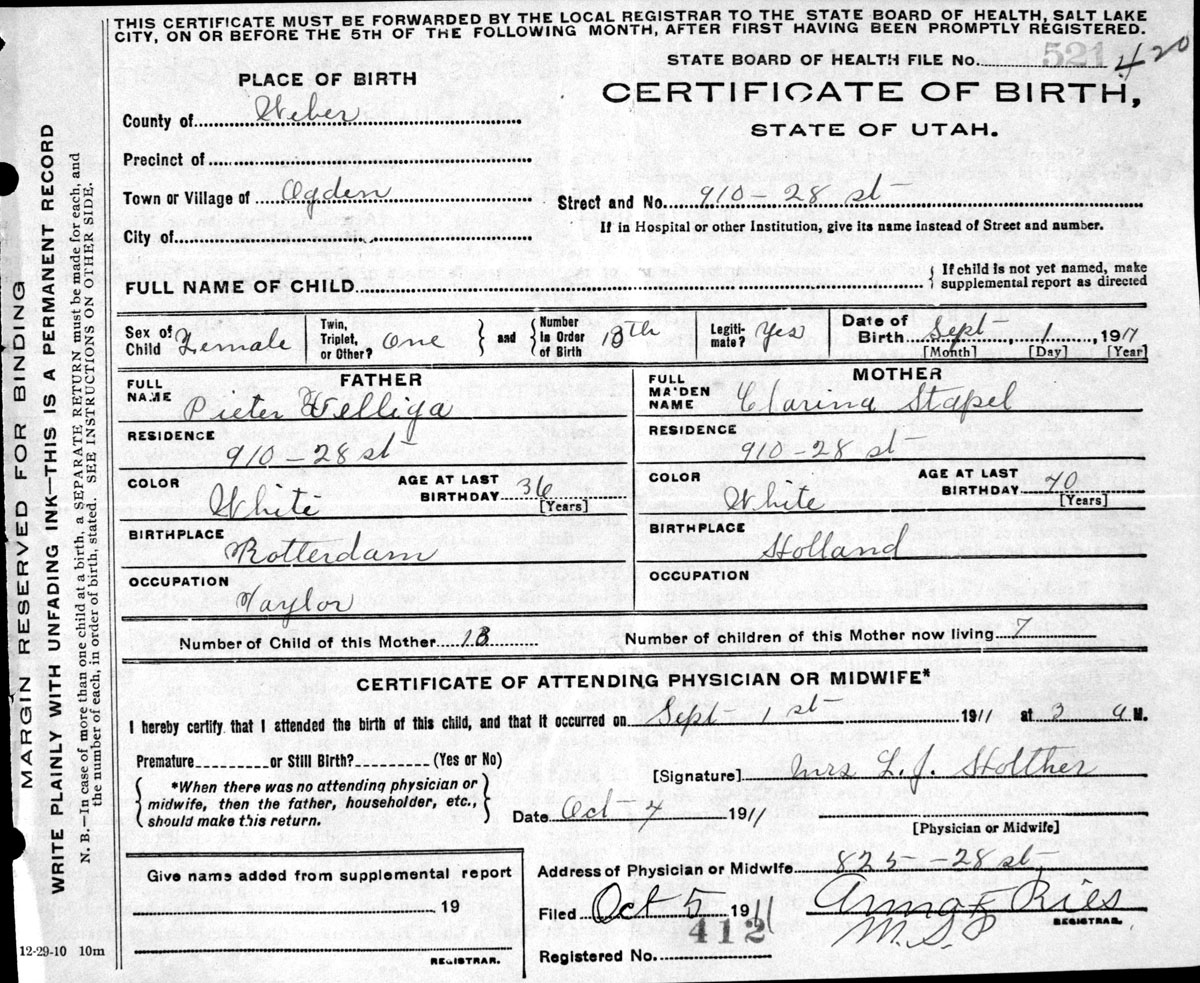 THIS CERTIFICATE MUST BE FORWARDED BY THE LOCAL REGISTRAR TO THE STATE BOARD OF HEALTH, SALT LAKE
CITY, ON OR BEFORE THE 5TH OF THE FOLLOWING MONTH, AFTER FIRST HAVING BEEN PROMPTLY REGISTERED.
STATE BOARD OF HEALTH FILE No. 521 420
PLACE OF BIRTH
CERTIFICATE OF BIRTH,
STATE OF UTAH.
County of Weber
Precinct of
Town or Village of Ogden
Street and No. 910 - 28 st
City of
If in Hospital or other Institution, give its name instead of Street and number.
FULL NAME OF CHILD
{ If child is not yet named, make
supplemental report as directed
Sex of Child Female
Twin, Triplet, or Other? One
and
Number in Order of Birth 13th
Legitimate? Yes
Date of Birth Sept 1, 1911
[Month] [Day] [Year]
FATHER
FULL NAME Pieter Welliga
RESIDENCE 910 - 28 st
COLOR White
AGE AT LAST BIRTHDAY 36 [Years]
BIRTHPLACE Rotterdam
OCCUPATION Taylor
MOTHER
FULL MAIDEN NAME Clarina Stapel
RESIDENCE 910 - 28 st
COLOR White
AGE AT LAST BIRTHDAY 40 [Years]
BIRTHPLACE Holland
OCCUPATION
Number of Child of this Mother 13
Number of children of this Mother now living 7
CERTIFICATE OF ATTENDING PHYSICIAN OR MIDWIFE*
I hereby certify that I attended the birth of this child, and that it occurred on Sept 1 st 1911 at 3 a M.
Premature or Still Birth? (Yes or No)
*When there was no attending physician or
midwife, then the father, householder, etc.,
should make this return.
[Signature] Mrs L. J. Holther
Date Oct 4 1911
[Physician or Midwife]
Give name added from supplemental report
19
REGISTRAR.
Address of Physician or Midwife 825 - 28 st
Filed Oct 5 1911
Anna F Ries
REGISTRAR.
412
Registered No.
12-29-10 10m
MARGIN RESERVED FOR BINDING
WRITE PLAINLY WITH UNFADING INK—THIS IS A PERMANENT RECORD
N. B.—In case of more than one child at a birth, a SEPARATE RETURN must be made for each, and
the number of each, in order of birth, stated. SEE INSTRUCTIONS ON OTHER SIDE.